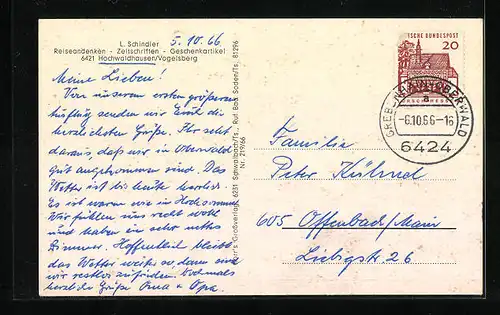 L. Schindler
Reiseandenken - Zeitschriften - Geschenkartikel
6421 Hochwaldhausen/Vogelsberg
5.10.66
Meine Lieben!
Von unserem ersten größeren
Ausflug senden wir Euch die
herzlichsten Grüße. Ihr seht
daraus, daß wir in Oberwald
gut angekommen sind. Das
Wetter ist bis heute herrlich.
Es ist warm wie im Hochsommer.
Wir fühlen uns recht wohl
und haben ein sehr nettes
Zimmer. Hoffentlich bleibt
das Wetter weiter so, dann sind
wir restlos zufrieden. Nochmals
herzliche Grüße Oma + Opa.
Großverlag, 6231 Schwalbach/Ts., Ruf Bad Soden/Ts. 81296
Nr. 219/66
DEUTSCHE BUNDESPOST
20
GREBENHAIN-OBERWALD
a
-6.10.66-16
6424
Familie
Peter Kühnel
605 Offenbach/Main
Liebigstr 26